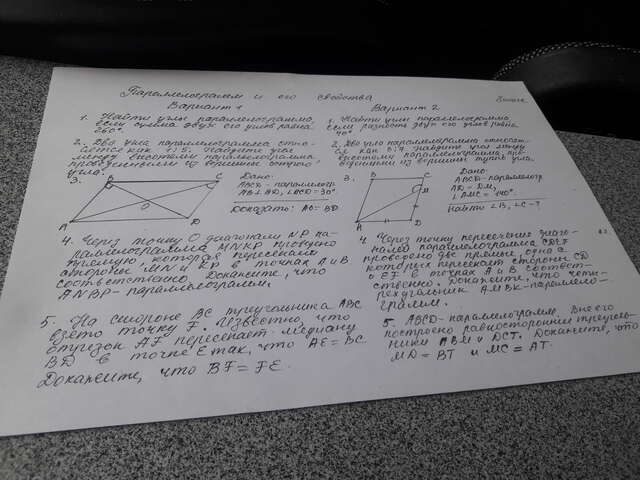 Параллелограмм и его свойства
Вариант 1
1. Найти углы параллелограмма,
если сумма двух его углов равна
260°.
2. Два угла параллелограмма отно-
сятся как 1:5. Найдите угол
между высотами параллелограмма,
проведенными из вершины острого
угла.
3.
B
C
O
A
D
Дано:
ABCD - параллелогр
Доказать:
4. Через точку O диагонали NP па-
раллелограмма MNKP проведено
прямую, которая пересекает
стороны MN и KP в точках A и B
соответственно. Докажите, что
ANBP - параллелограмм.
5. На стороне BC треугольника ABC
взято точку F. Известно, что
отрезок AF пересекает медиану
BD в точке E так, что AE = BC.
Докажите, что BF = FE.
Вариант 2
1. Найти углы параллелограмма,
если разность двух его углов равна
2. Два угла параллелограмма относят-
ся как 5:7. Найдите угол между
высотами параллелограмма, про-
веденными из вершины тупого угла.
3.
B
C
M
A
D
Дано:
ABCD - параллелогр
AD = DM,
∠AMC = 140°.
Найти ∠B, ∠C - ?
4. Через точку пересечения диаго-
налей параллелограмма CDEF
проведено две прямые, одна з
которых пересекает стороны CD
и EF в точках A и B соответ-
ственно. Докажите, что четы-
рехугольник AMBK - параллело-
грамм.
5. ABCD - параллелограмм. Вне его
построено равносторонние треуголь-
ники ABM и DCT. Докажите, что
MD = BT и MC = AT.